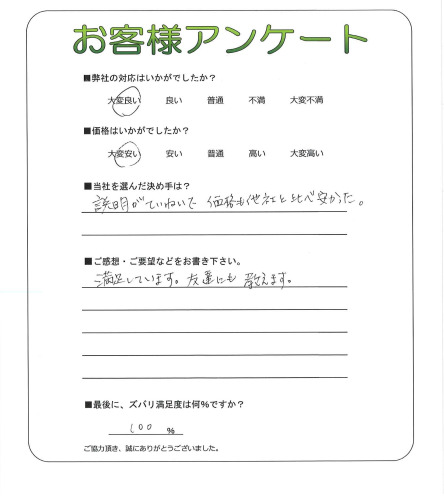 お客様アンケート
■弊社の対応はいかがでしたか?
大変良い 良い 普通 不満 大変不満
■価格はいかがでしたか?
大変安い 安い 普通 高い 大変高い
■当社を選んだ決め手は?
説明がていねいで 価格も他社と比べ安かった。
■ご感想・ご要望などをお書き下さい。
満足しています。友達にも教えます。
■最後に、ズバリ満足度は何%ですか?
100 %
ご協力頂き、誠にありがとうございました。